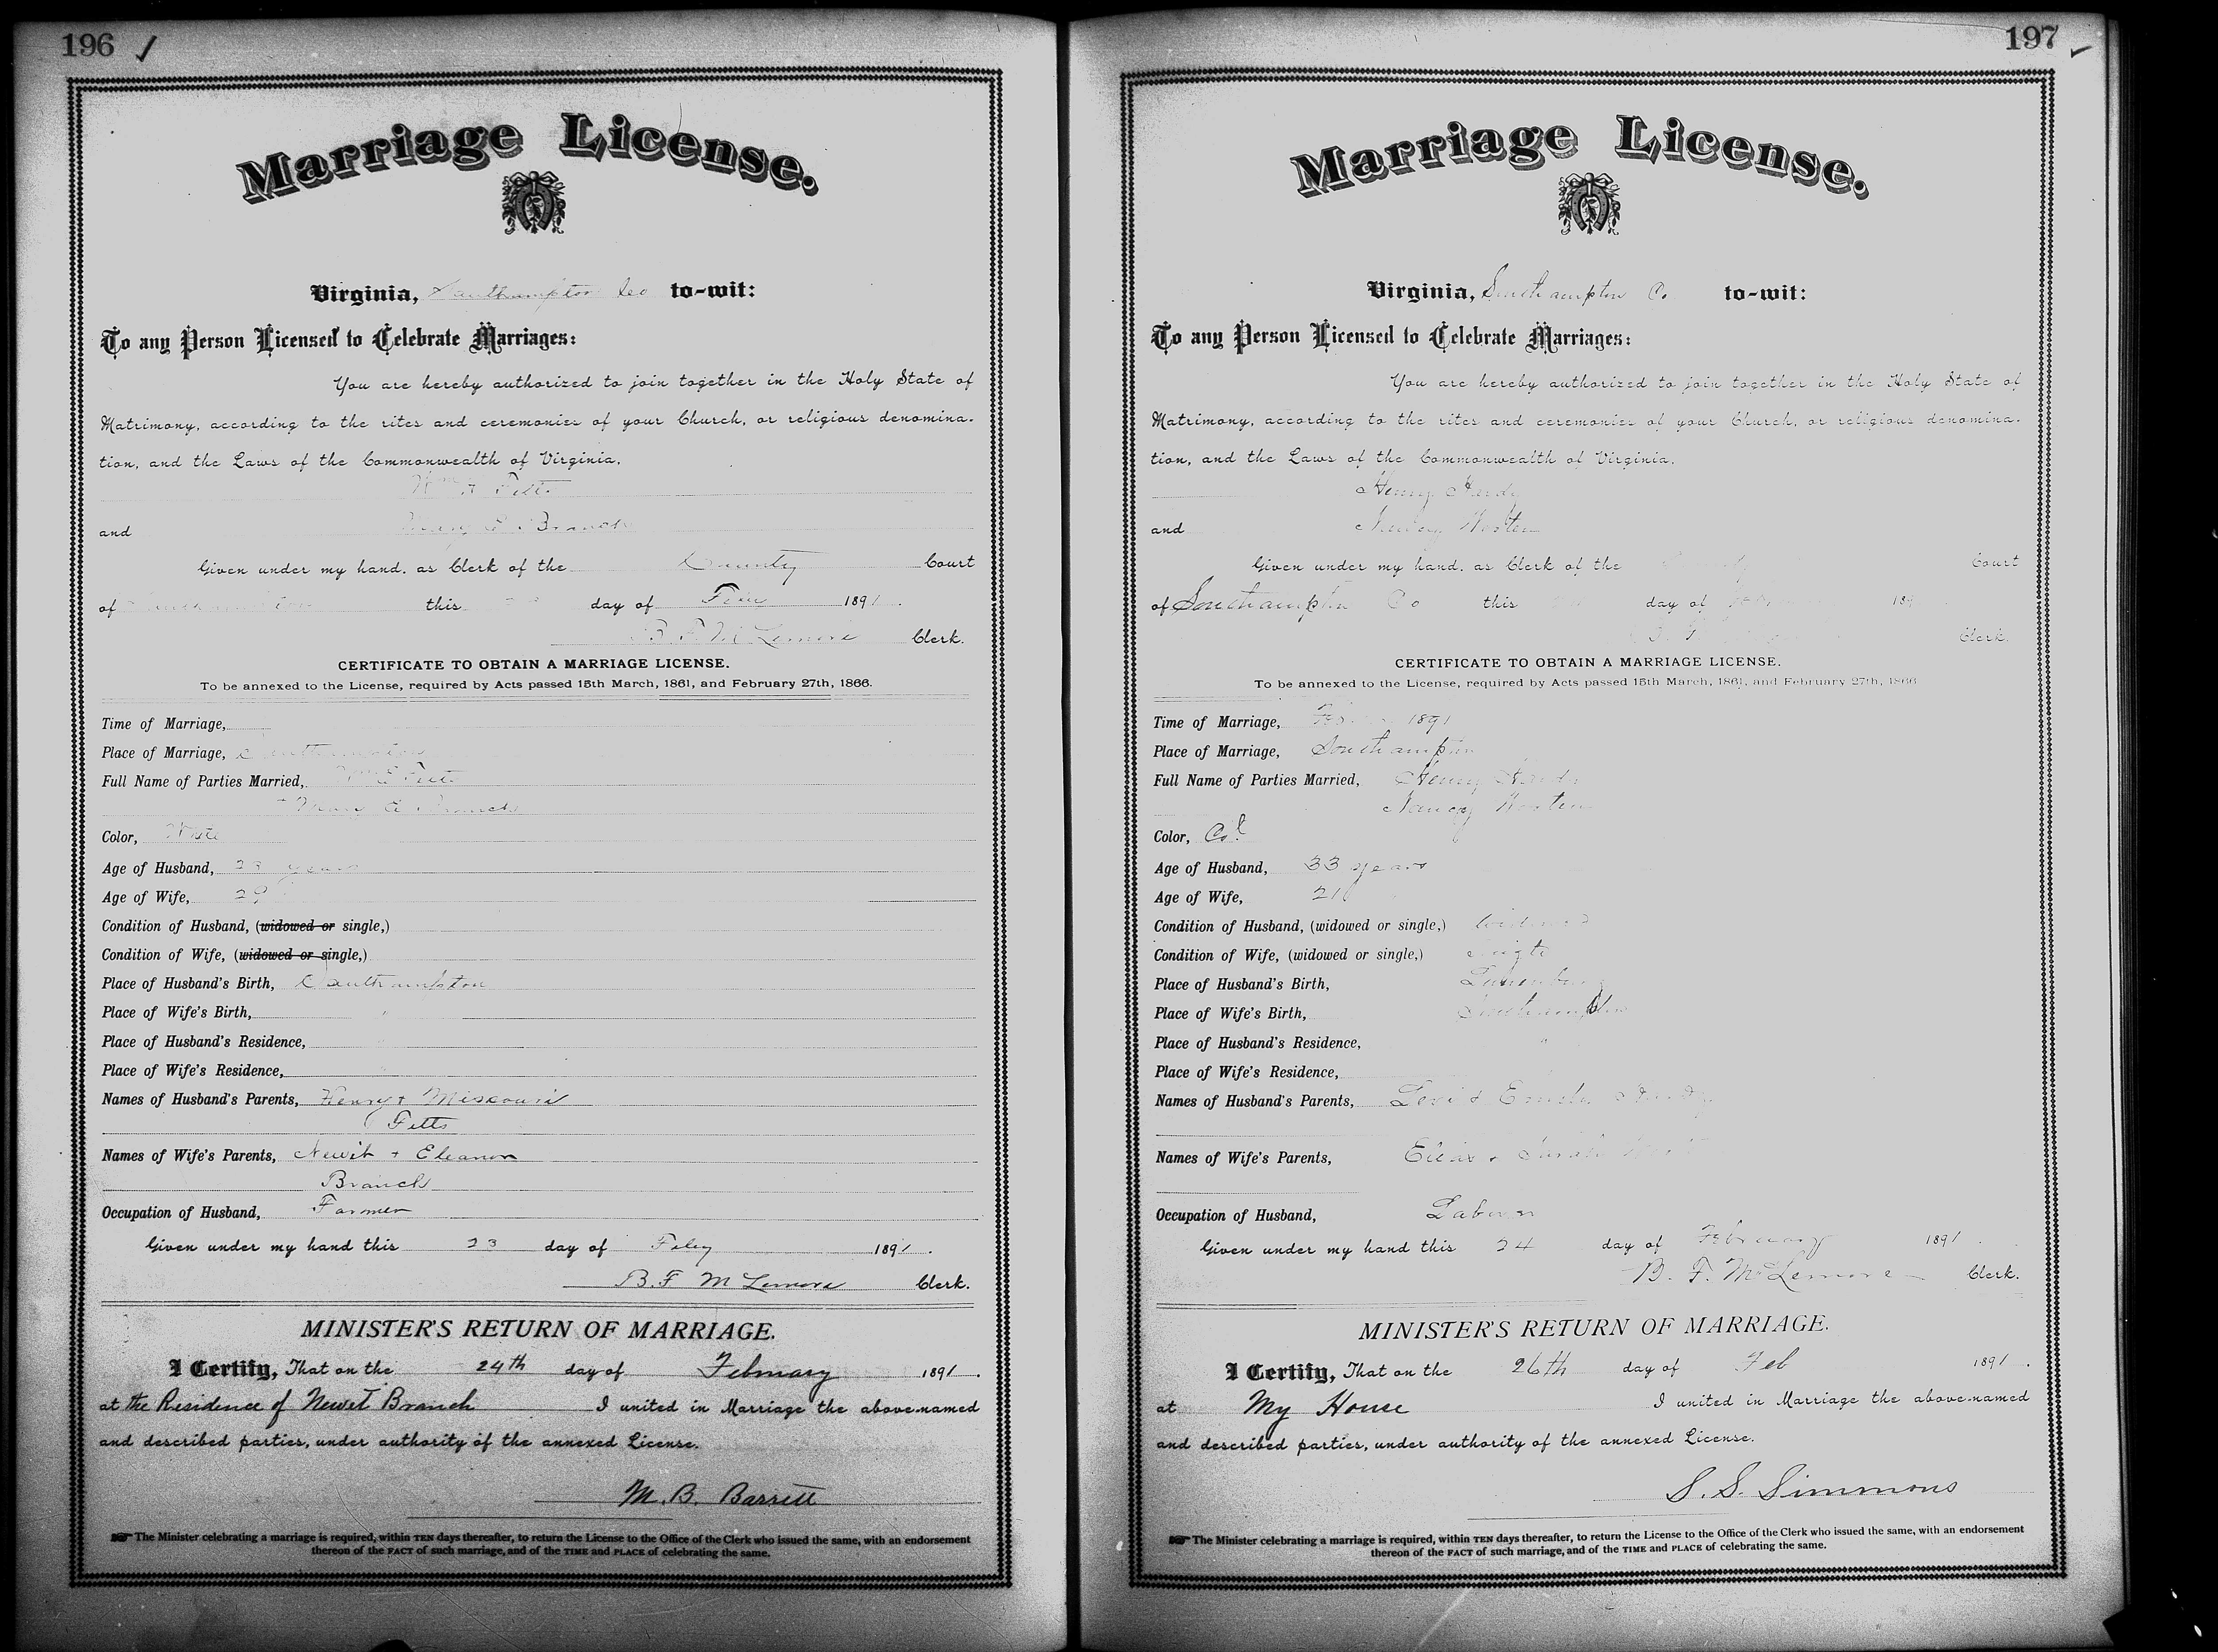 196
Marriage License.
Virginia, Southampton Co to-wit:
To any Person Licensed to Celebrate Marriages:
You are hereby authorized to join together in the Holy State of
Matrimony, according to the rites and ceremonies of your Church, or religious denomina-
tion, and the Laws of the Commonwealth of Virginia.
Felts
and Mary Branch
Given under my hand, as Clerk of the County Court
of Southampton this day of Feby 1891.
B. F. McLemore Clerk.
CERTIFICATE TO OBTAIN A MARRIAGE LICENSE.
To be annexed to the License, required by Acts passed 15th March, 1861, and February 27th, 1866.
Time of Marriage,
Place of Marriage, Southampton
Full Name of Parties Married, Felts
Mary Branch
Color, White
Age of Husband, 23 years
Age of Wife, 29
Condition of Husband, (widowed or single,)
Condition of Wife, (widowed or single,)
Place of Husband's Birth, Southampton
Place of Wife's Birth, "
Place of Husband's Residence, "
Place of Wife's Residence, "
Names of Husband's Parents, Henry & Missouri
Felts
Names of Wife's Parents, Newit + Eleanor
Branch
Occupation of Husband, Farmer
Given under my hand this 23 day of Feby 1891.
B. F McLemore Clerk.
MINISTER'S RETURN OF MARRIAGE.
I Certify, That on the 24th day of February 1891.
at the Residence of Newet Branch I united in Marriage the above-named
and described parties, under authority of the annexed License.
M. B. Barrett
The Minister celebrating a marriage is required, within TEN days thereafter, to return the License to the Office of the Clerk who issued the same, with an endorsement
thereon of the FACT of such marriage, and of the TIME and PLACE of celebrating the same.
197
Marriage License.
Virginia, Southampton Co to-wit:
To any Person Licensed to Celebrate Marriages:
You are hereby authorized to join together in the Holy State of
Matrimony, according to the rites and ceremonies of your Church, or religious denomina-
tion, and the Laws of the Commonwealth of Virginia.
Henry Hardy
and Nancy Worten
Given under my hand, as Clerk of the Court
of Southampton Co this day of 189
Clerk.
CERTIFICATE TO OBTAIN A MARRIAGE LICENSE.
To be annexed to the License, required by Acts passed 15th March, 1861, and February 27th, 1866
Time of Marriage, 1891
Place of Marriage, Southampton
Full Name of Parties Married, Henry Hardy
Nancy Worten
Color, Cold
Age of Husband, 33 years
Age of Wife, 21
Condition of Husband, (widowed or single,) widowed
Condition of Wife, (widowed or single,) single
Place of Husband's Birth, Lunenburg
Place of Wife's Birth, Southampton
Place of Husband's Residence, "
Place of Wife's Residence,
Names of Husband's Parents, Levi & Hardy
Names of Wife's Parents, & Sarah
Occupation of Husband, Laborer
Given under my hand this 24 day of February 1891.
B. F. McLemore Clerk.
MINISTER'S RETURN OF MARRIAGE.
I Certify, That on the 26th day of Feb 1891.
at My House I united in Marriage the above-named
and described parties, under authority of the annexed License.
S. S. Simmons
The Minister celebrating a marriage is required, within TEN days thereafter, to return the License to the Office of the Clerk who issued the same, with an endorsement
thereon of the FACT of such marriage, and of the TIME and PLACE of celebrating the same.